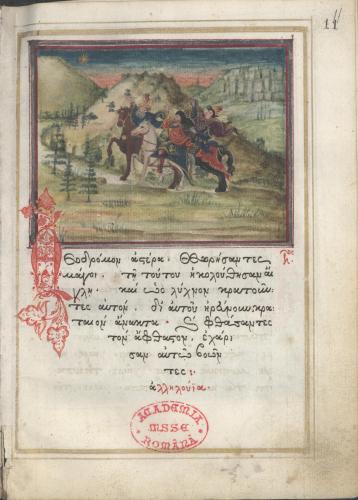 11
Θεοδρόμον ἀστέρα · θεωρήσαντες
μάγοι · τῇ τούτου ἠκολούθησαν αἴ
γλῃ · καὶ ὡς λύχνον κρατοῦν
τες αὐτόν · δι' αὐτοῦ ἠρεύνων κρα
ταιὸν ἄνακτα · ϗ φθάσαντες
τὸν ἄφθαστον, ἐχάρη
σαν αὐτῷ βοῶν
τες :
ἀλληλούια
ACADEMIA
MSSE
ROMÂNĂ